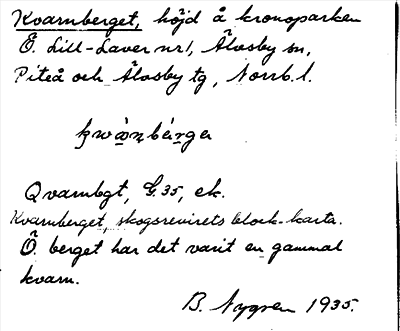 Kvarnberget, höjd å kronoparken
Ö. Lill-Laver nr 1, Älvsby sn,
Piteå och Älvsby tg, Norrb. l.
Qvarnbgt, G. 35, ek.
Kvarnberget, skogsrevirets block-karta.
Ö. berget har det varit en gammal
kvarn.
B. Nygren 1935.